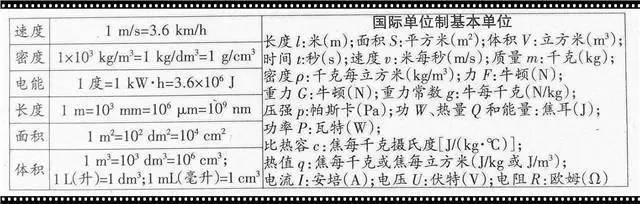 速度 1 m/s=3.6 km/h
密度 1×10³ kg/m³=1 kg/dm³=1 g/cm³
电能 1度=1 kW·h=3.6×10⁶ J
长度 1 m=10³ mm=10⁶ μm=10⁹ nm
面积 1 m²=10² dm²=10⁴ cm²
体积 1 m³=10³ dm³=10⁶ cm³;
1 L(升)=1 dm³;1 mL(毫升)=1 cm³
国际单位制基本单位
长度l:米(m);面积S:平方米(m²);体积V:立方米(m³);
时间t:秒(s);速度v:米每秒(m/s);质量m:千克(kg);
密度ρ:千克每立方米(kg/m³);力F:牛顿(N);
重力G:牛顿(N);重力常数g:牛每千克(N/kg);
压强p:帕斯卡(Pa);功W、热量Q和能量:焦耳(J);
功率P:瓦特(W);
比热容c:焦每千克摄氏度[J/(kg·℃)];
热值q:焦每千克或焦每立方米(J/kg或J/m³);
电流I:安培(A);电压U:伏特(V);电阻R:欧姆(Ω)